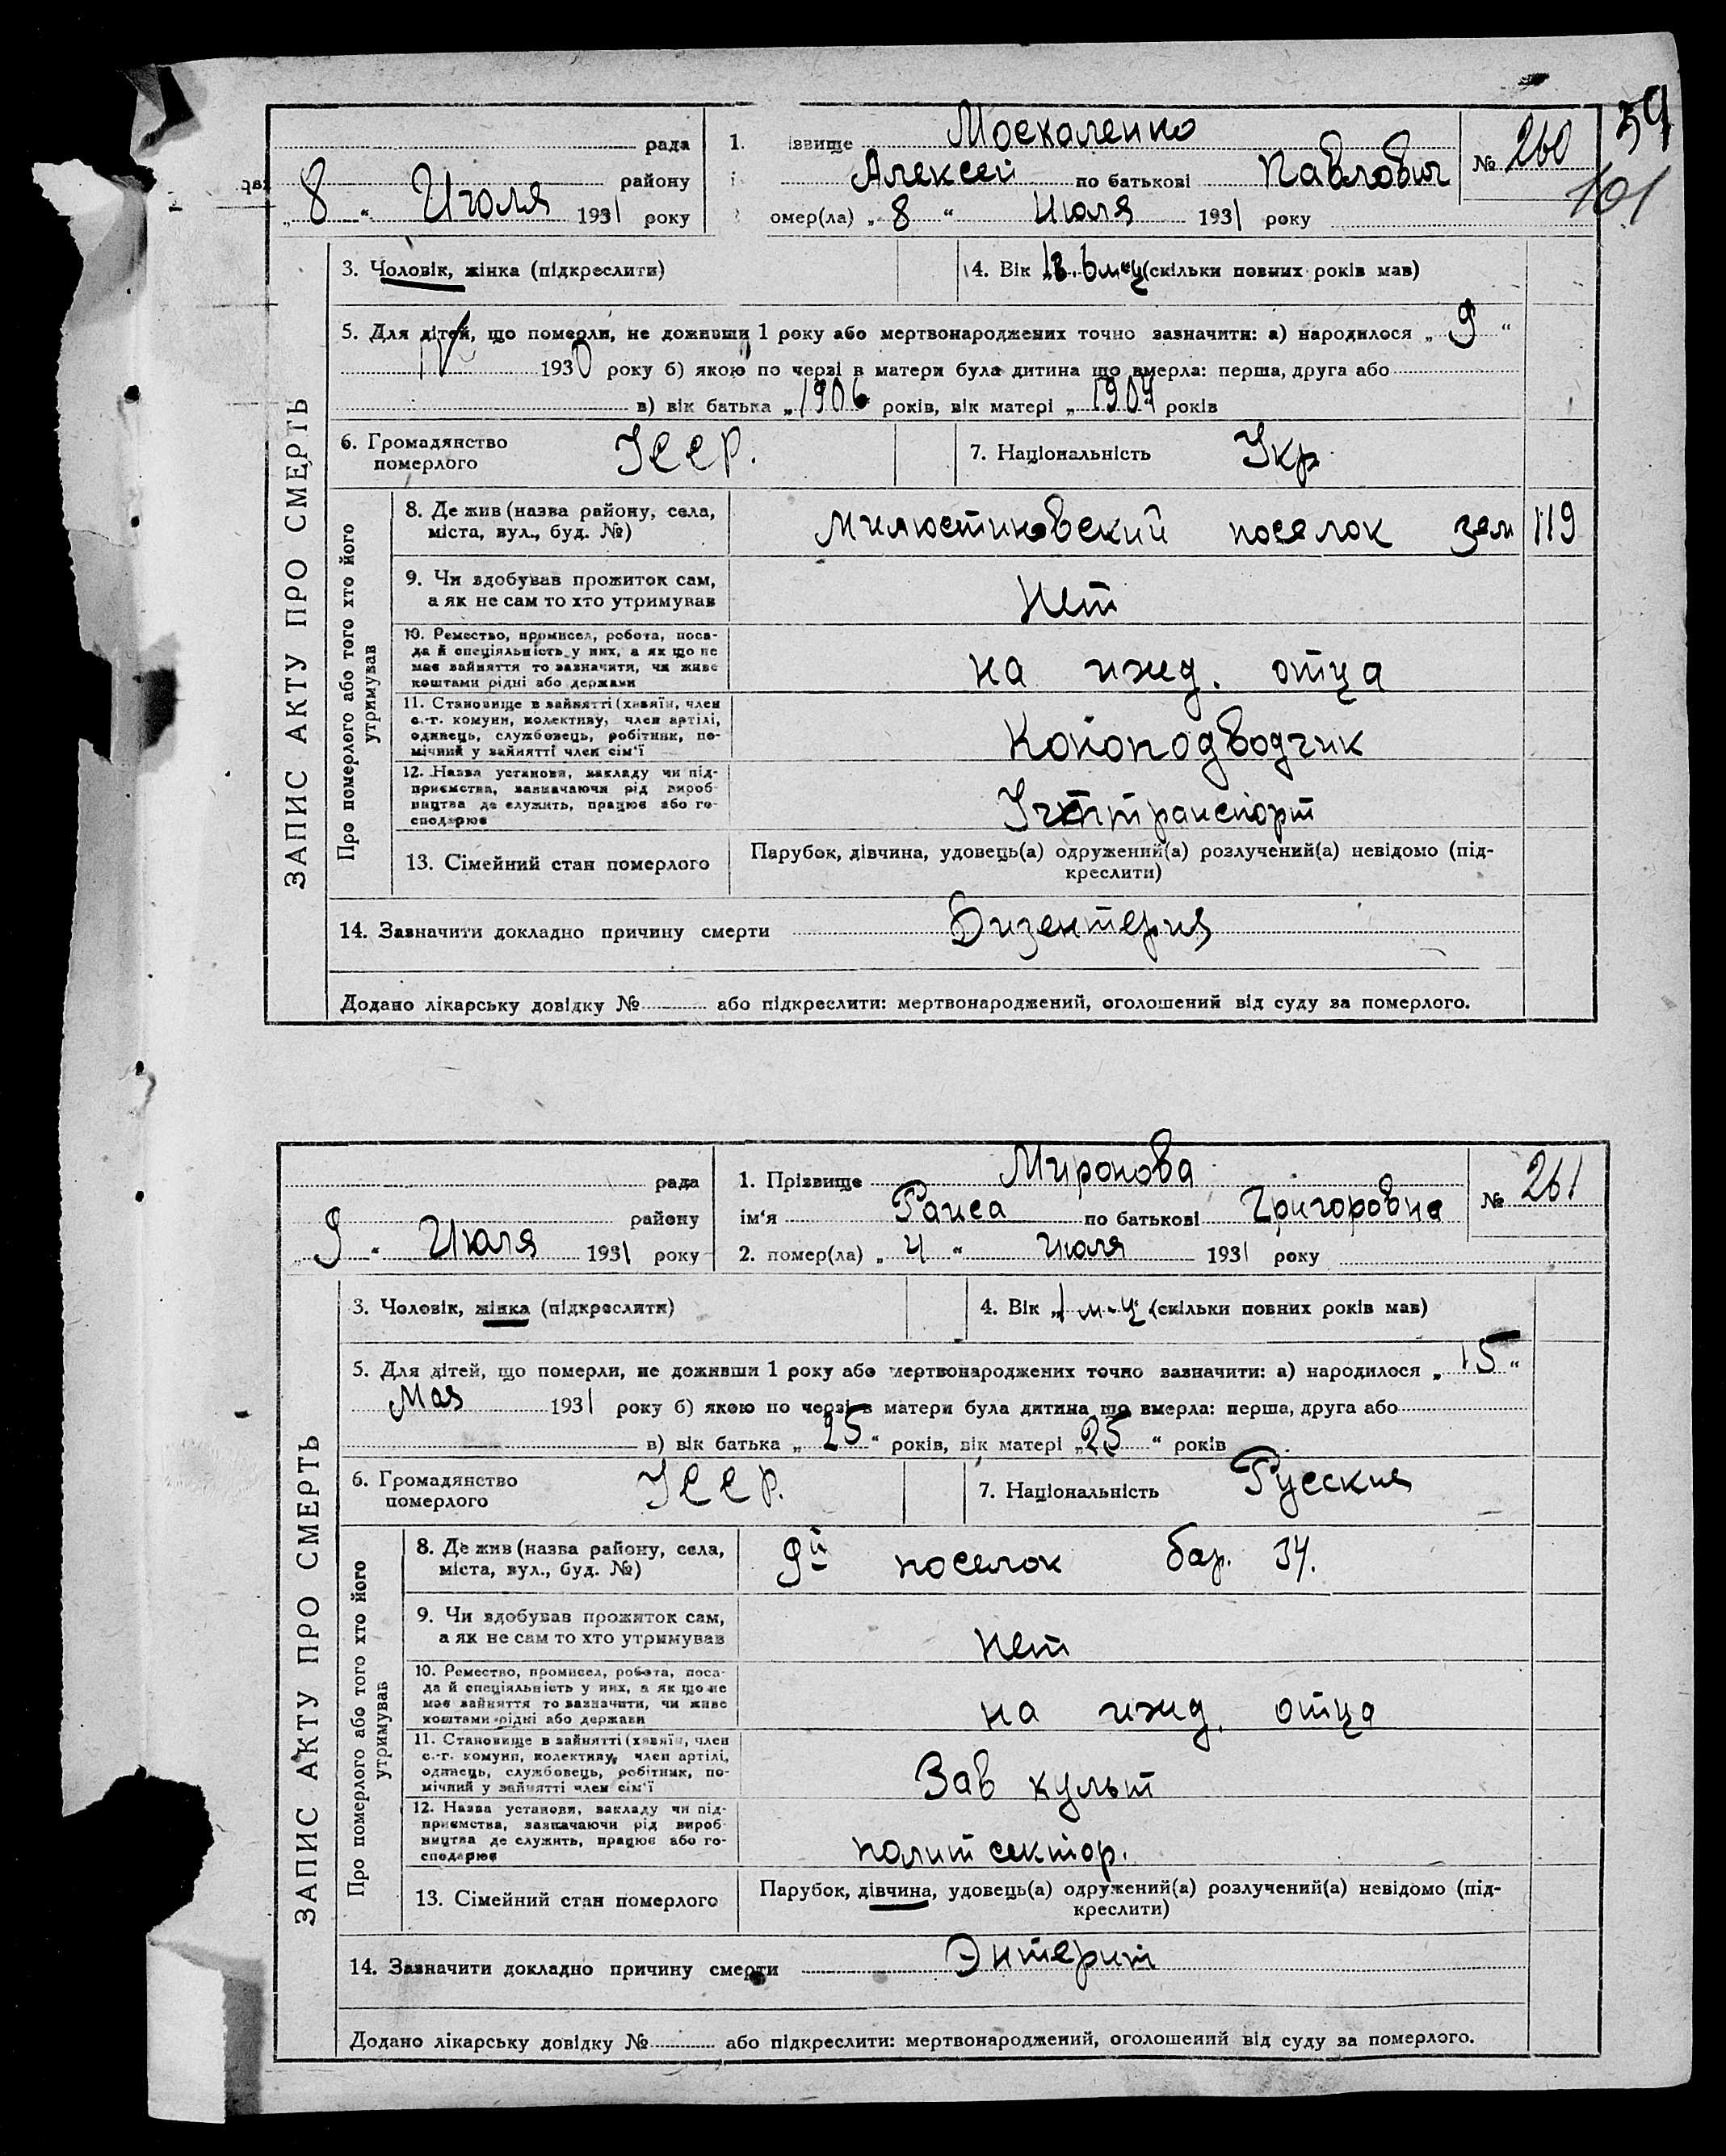 59
101
рада 1. ізвище Москаленко № 260
району Алексей по батькові Павлович
„ 8 “ Июля 1931 року омер(ла) „ 8 “ Июля 1931 року
ЗАПИС АКТУ ПРО СМЕРТЬ
3. Чоловік, жінка (підкреслити) 4. Вік (скільки повних років мав)
5. Для дітей, що померли, не доживши 1 року або мертвонароджених точно зазначити: а) народилося „ 9 “
IV 1930 року б) якою по черзі в матери була дитина що вмерла: перша, друга або
в) вік батька „ 1906 років, вік матері „ 1907 років
6. Громадянство УССР. 7. Національність Укр
померлого
Про померлого або того хто його утримував
8. Де жив (назва району, села, Милюстиновский поселок зем 119
міста, вул., буд. №)
9. Чи здобував прожиток сам, Нет
а як не сам то хто утримував
10. Ремество, промисел, робота, поса-
да й спеціяльність у них, а як що не
має зайняття то зазначити, чи живе на ижд. отца
коштами рідні або держави
11. Становище в зайнятті (хазяїн, член
с.-г. комуни, колективу, член артілі,
одинець, службовець, робітник, по- Коноподводчик
мічний у зайнятті член сім'ї
12. Назва установи, закладу чи під-
приємства, зазначаючи рід вироб-
ництва де служить, працює або го-
сподарює
13. Сімейний стан померлого Парубок, дівчина, удовець(а) одружений(а) розлучений(а) невідомо (під-
креслити)
14. Зазначити докладно причину смерти Дизентерия
Додано лікарську довідку № або підкреслити: мертвонароджений, оголошений від суду за померлого.
рада 1. Прізвище Миронова № 261
району ім'я Раиса по батькові Григоровна
„ 9 “ Июля 1931 року 2. помер(ла) „ 4 “ Июля 1931 року
ЗАПИС АКТУ ПРО СМЕРТЬ
3. Чоловік, жінка (підкреслити) 4. Вік „ 1 м-ц (скільки повних років мав)
5. Для дітей, що померли, не доживши 1 року або мертвонароджених точно зазначити: а) народилося „ 15 “
Мая 1931 року б) якою по черзі в матери була дитина що вмерла: перша, друга або
в) вік батька „ 25 “ років, вік матері „ 25 “ років
6. Громадянство УССР. 7. Національність Русские
померлого
Про померлого або того хто його утримував
8. Де жив (назва району, села, 9й поселок бар. 34.
міста, вул., буд. №)
9. Чи здобував прожиток сам, нет
а як не сам то хто утримував
10. Ремество, промисел, робота, поса-
да й спеціяльність у них, а як що не
має зайняття то зазначити, чи живе на ижд. отца
коштами рідні або держави
11. Становище в зайнятті (хазяїн, член
с.-г. комуни, колективу, член артілі,
одинець, службовець, робітник, по- Зав культ
мічний у зайнятті член сім'ї
12. Назва установи, закладу чи під-
приємства, зазначаючи рід вироб-
ництва де служить, працює або го- полит сектор.
сподарює
13. Сімейний стан померлого Парубок, дівчина, удовець(а) одружений(а) розлучений(а) невідомо (під-
креслити)
14. Зазначити докладно причину смерти Энтерит
Додано лікарську довідку № або підкреслити: мертвонароджений, оголошений від суду за померлого.